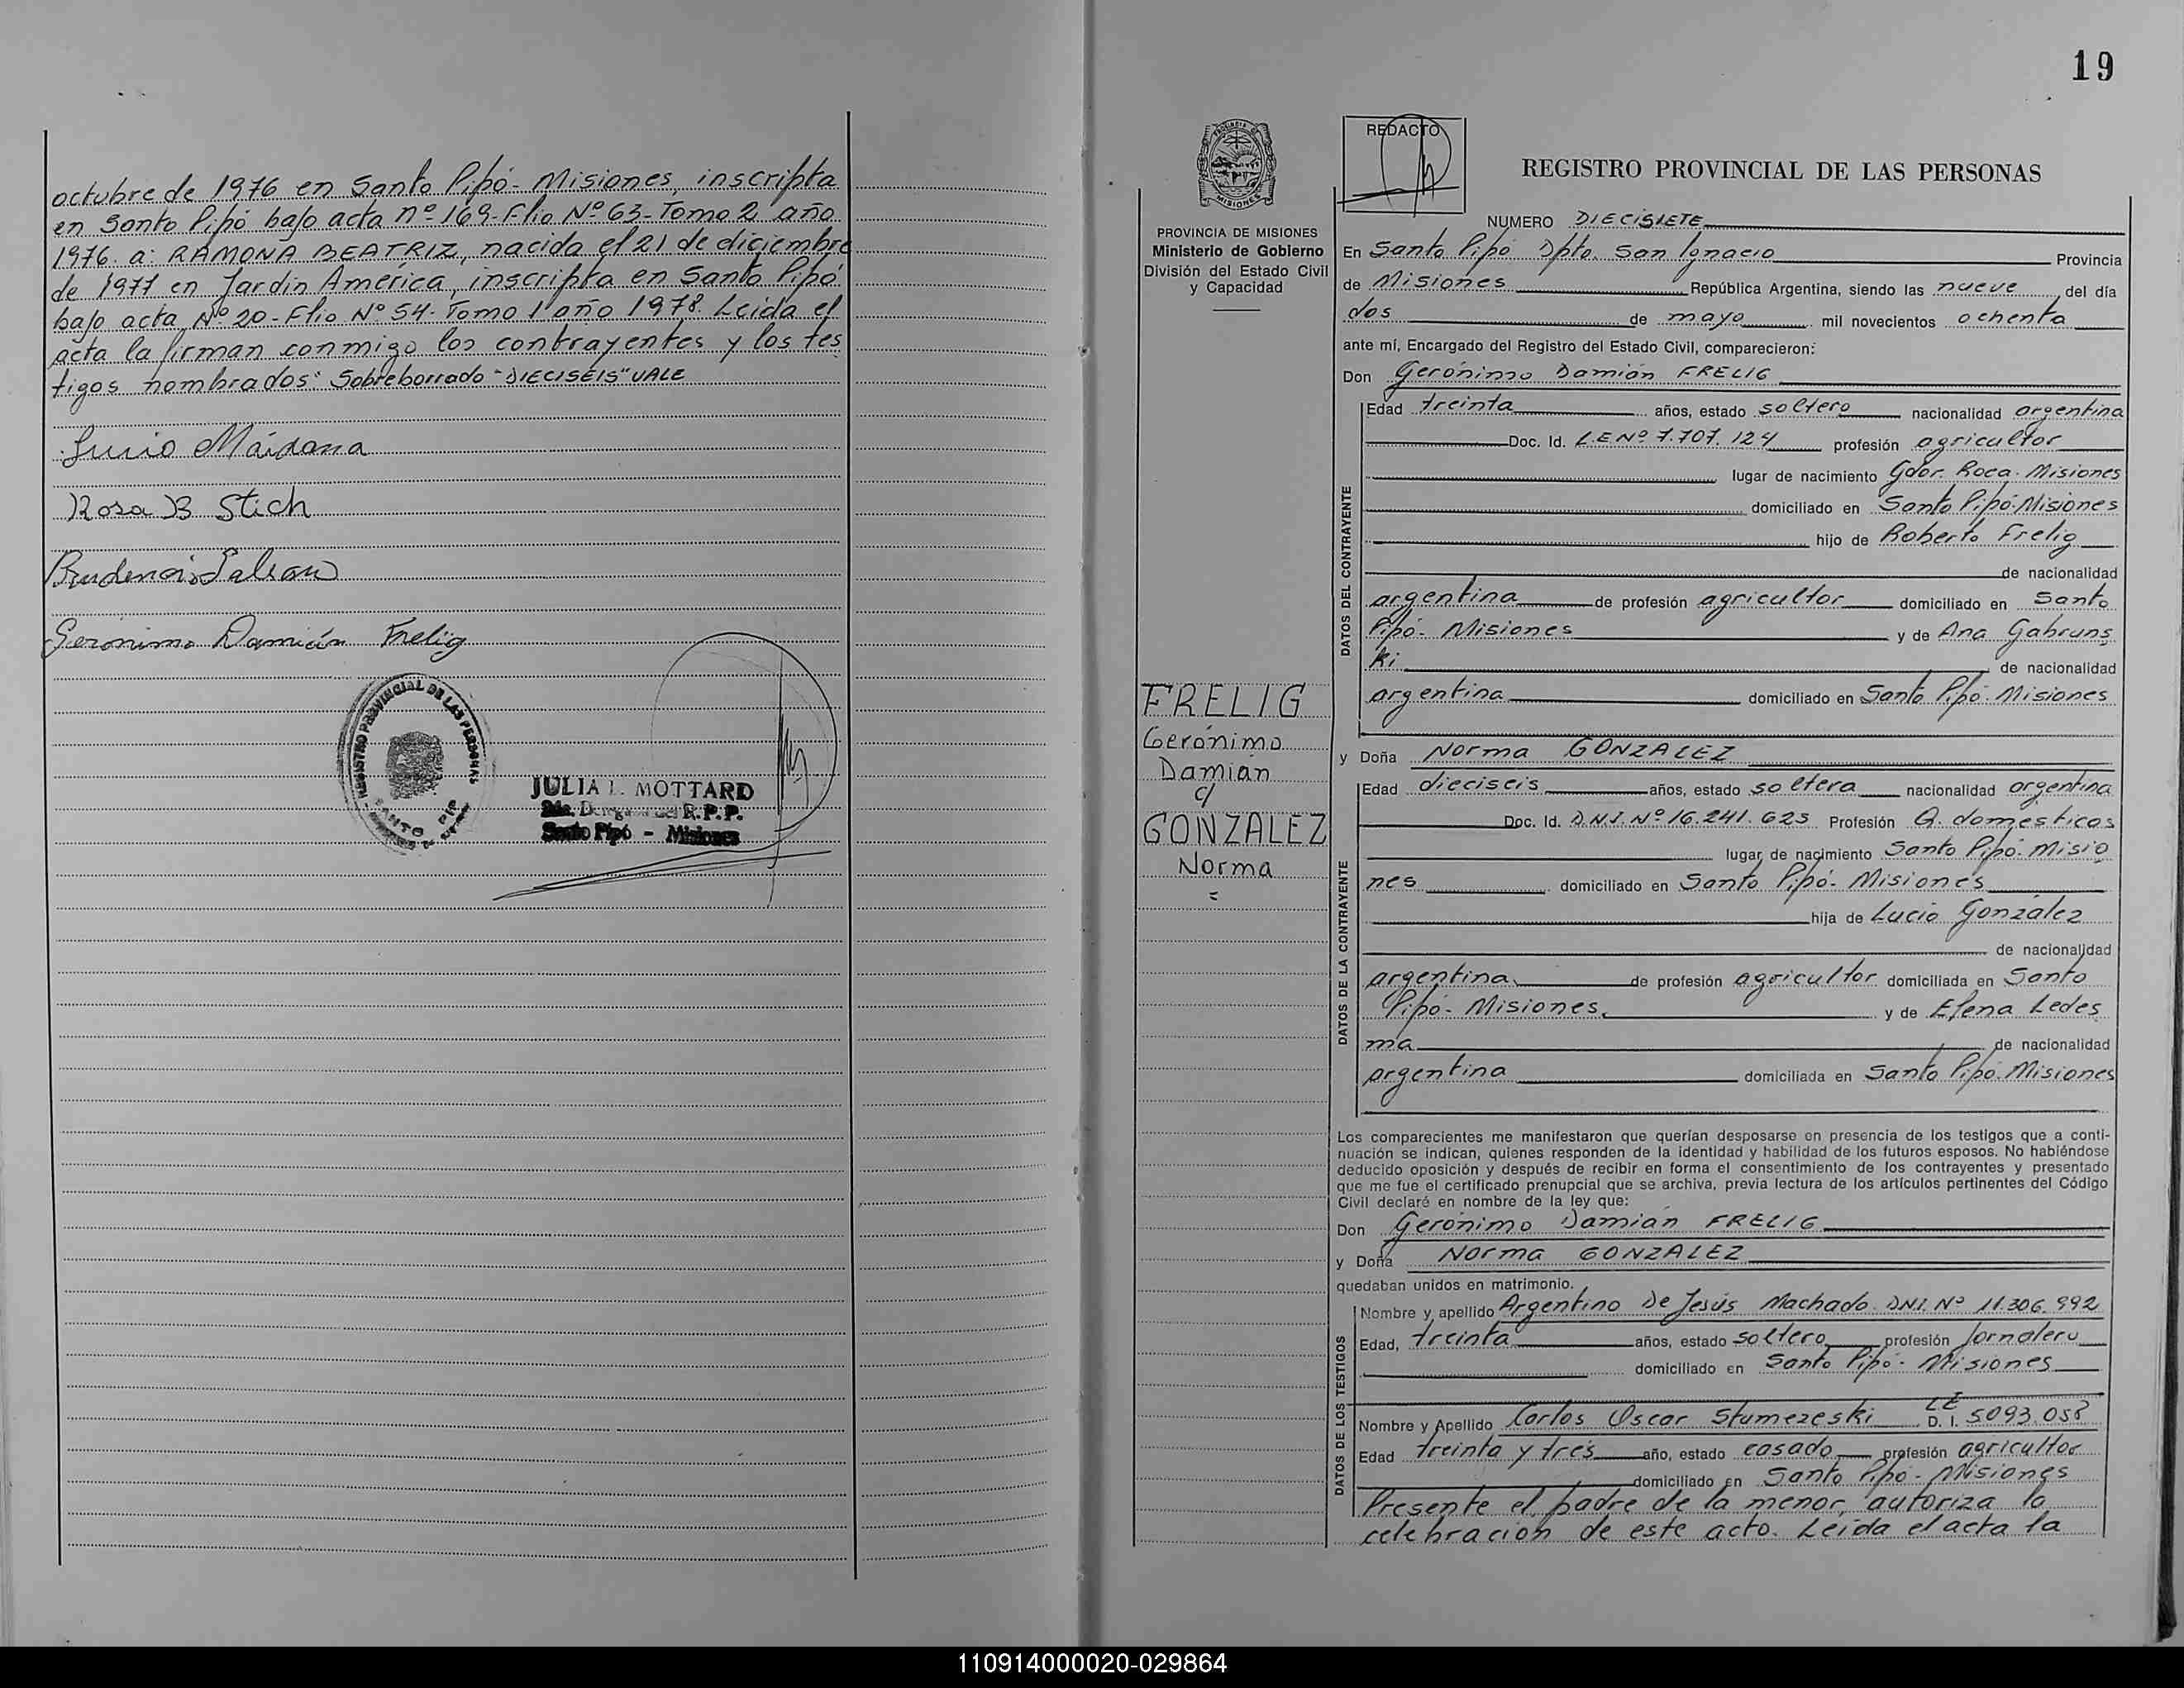 octubre de 1976 en Santo Pipó- Misiones, inscripta
en Santo Pipó bajo acta nº 169- Flio Nº 63- Tomo 2 año
1976. a: RAMONA BEATRIZ, nacida el 21 de diciembre
de 1977 en Jardín América, inscripta en Santo Pipó
bajo acta Nº 20- Flio Nº 54. Tomo 1º año 1978. Leída el
acta la firman conmigo los contrayentes y los tes
tigos nombrados: Sobreborrado "DIECISEIS" VALE
Lucio Máidana
Rosa B Stich
Prudencio
Gerónimo Damián Frelig
REGISTRO PROVINCIAL DE LAS PERSONAS
SANTO PIPO
JULIA L. MOTTARD
2da. Delegada del R.P.P.
Santo Pipó - Misiones
19
PROVINCIA DE MISIONES
Ministerio de Gobierno
División del Estado Civil
y Capacidad
FRELIG
Gerónimo
Damián
c/
GONZALEZ
Norma
=
REDACTO
REGISTRO PROVINCIAL DE LAS PERSONAS
NUMERO DIECISIETE
En Santo Pipó Dpto. San Ignacio Provincia
de Misiones República Argentina, siendo las nueve del día
dos de mayo mil novecientos ochenta
ante mí, Encargado del Registro del Estado Civil, comparecieron:
Don Gerónimo Damián FRELIG
DATOS DEL CONTRAYENTE
Edad treinta años, estado soltero nacionalidad argentina
Doc. Id. L.E Nº 7.707.124 profesión agricultor
lugar de nacimiento Gdor. Roca- Misiones
domiciliado en Santo Pipó-Misiones
hijo de Roberto Frelig
de nacionalidad
argentina de profesión agricultor domiciliado en Santo
Pipó- Misiones y de Ana Gabruns
ki de nacionalidad
argentina domiciliado en Santo Pipó- Misiones
y Doña Norma GONZALEZ
DATOS DE LA CONTRAYENTE
Edad dieciseis años, estado soltera nacionalidad argentina
Doc. Id. D.N.I. Nº 16.241.623 Profesión Q. domésticos
lugar de nacimiento Santo Pipó- Misio
nes domiciliado en Santo Pipó- Misiones
hija de Lucio González
de nacionalidad
argentina de profesión agricultor domiciliada en Santo
Pipó- Misiones y de Elena Ledes
ma de nacionalidad
argentina domiciliada en Santo Pipó- Misiones
Los comparecientes me manifestaron que querían desposarse en presencia de los testigos que a conti-
nuación se indican, quienes responden de la identidad y habilidad de los futuros esposos. No habiéndose
deducido oposición y después de recibir en forma el consentimiento de los contrayentes y presentado
que me fue el certificado prenupcial que se archiva, previa lectura de los artículos pertinentes del Código
Civil declaré en nombre de la ley que:
Don Gerónimo Damián FRELIG
y Doña Norma GONZALEZ
quedaban unidos en matrimonio.
DATOS DE LOS TESTIGOS
Nombre y apellido Argentino De Jesús Machado DNI. Nº 11.306.992
Edad, treinta años, estado soltero profesión jornalero
domiciliado en Santo Pipó- Misiones
Nombre y Apellido Carlos Oscar Stumezeski LE D. I. 5093.058
Edad treinta y tres año, estado casado profesión agricultor
domiciliado en Santo Pipó- Misiones
Presente el padre de la menor, autoriza la
celebración de este acto. Leída el acta la
110914000020-029864